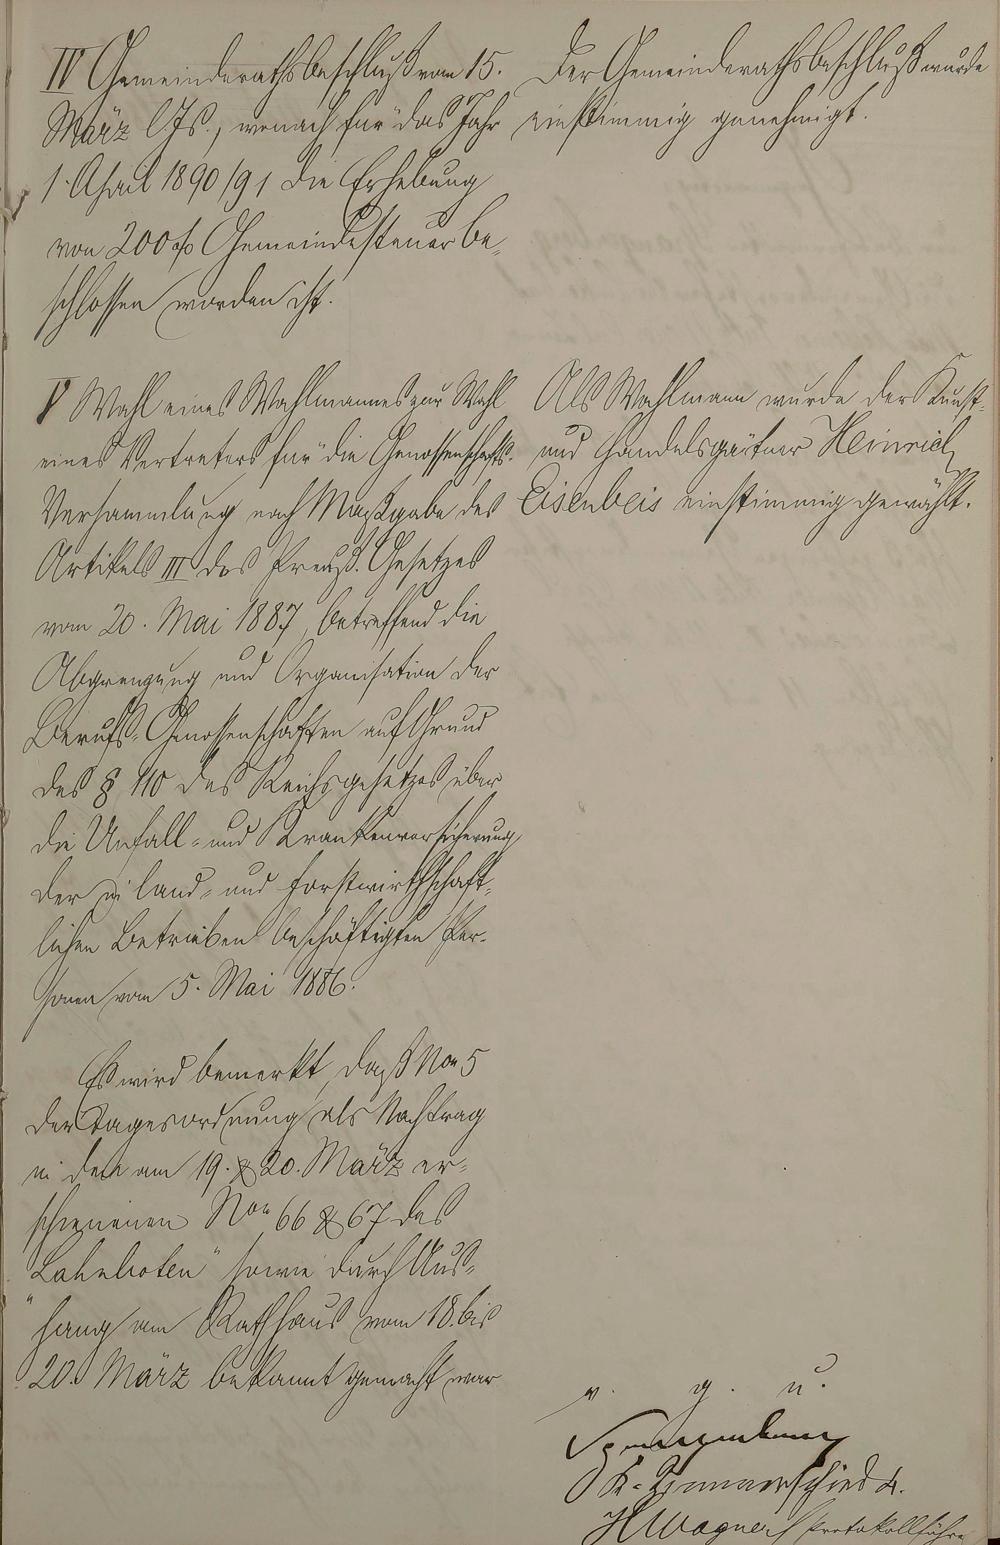 IV Gemeinderathsbeschluß vom 15.
März l. Js., wonach für das Jahr
1. April 1890/91 die Erhebung
von 200% Gemeindesteuer be-
schlossen worden ist.
Der Gemeinderathsbeschluß wurde
einstimmig genehmigt.
V Wahl eines Wahlmannes zur Wahl
eines Vertreters für die Genossenschafts-
Versammlung nach Maßgabe des
Artikels III des Preuß. Gesetzes
vom 20. Mai 1887, betreffend die
Abgrenzung und Organisation der
Berufs-Genossenschaften auf Grund
des § 110 des Reichsgesetzes über
die Unfall- und Krankenversicherung
der in land- und forstwirthschaft-
lichen Betrieben beschäftigten Per-
sonen vom 5. Mai 1886.
Als Wahlmann wurde der Kunst-
und Handelsgärtner Heinrich
Eisenbeis einstimmig gewählt.
Es wird bemerkt, daß Nro 5
der Tagesordnung als Nachtrag
in den am 19. & 20. März er-
schienenen Nro 66 & 67 des
„Lahnboten" sowie durch Aus-
hang am Rathhaus vom 18. bis
20. März bekannt gemacht war
v. g. u.
Spangenberg
K. Zimmerschied 4.
H Wagner Protokollführer